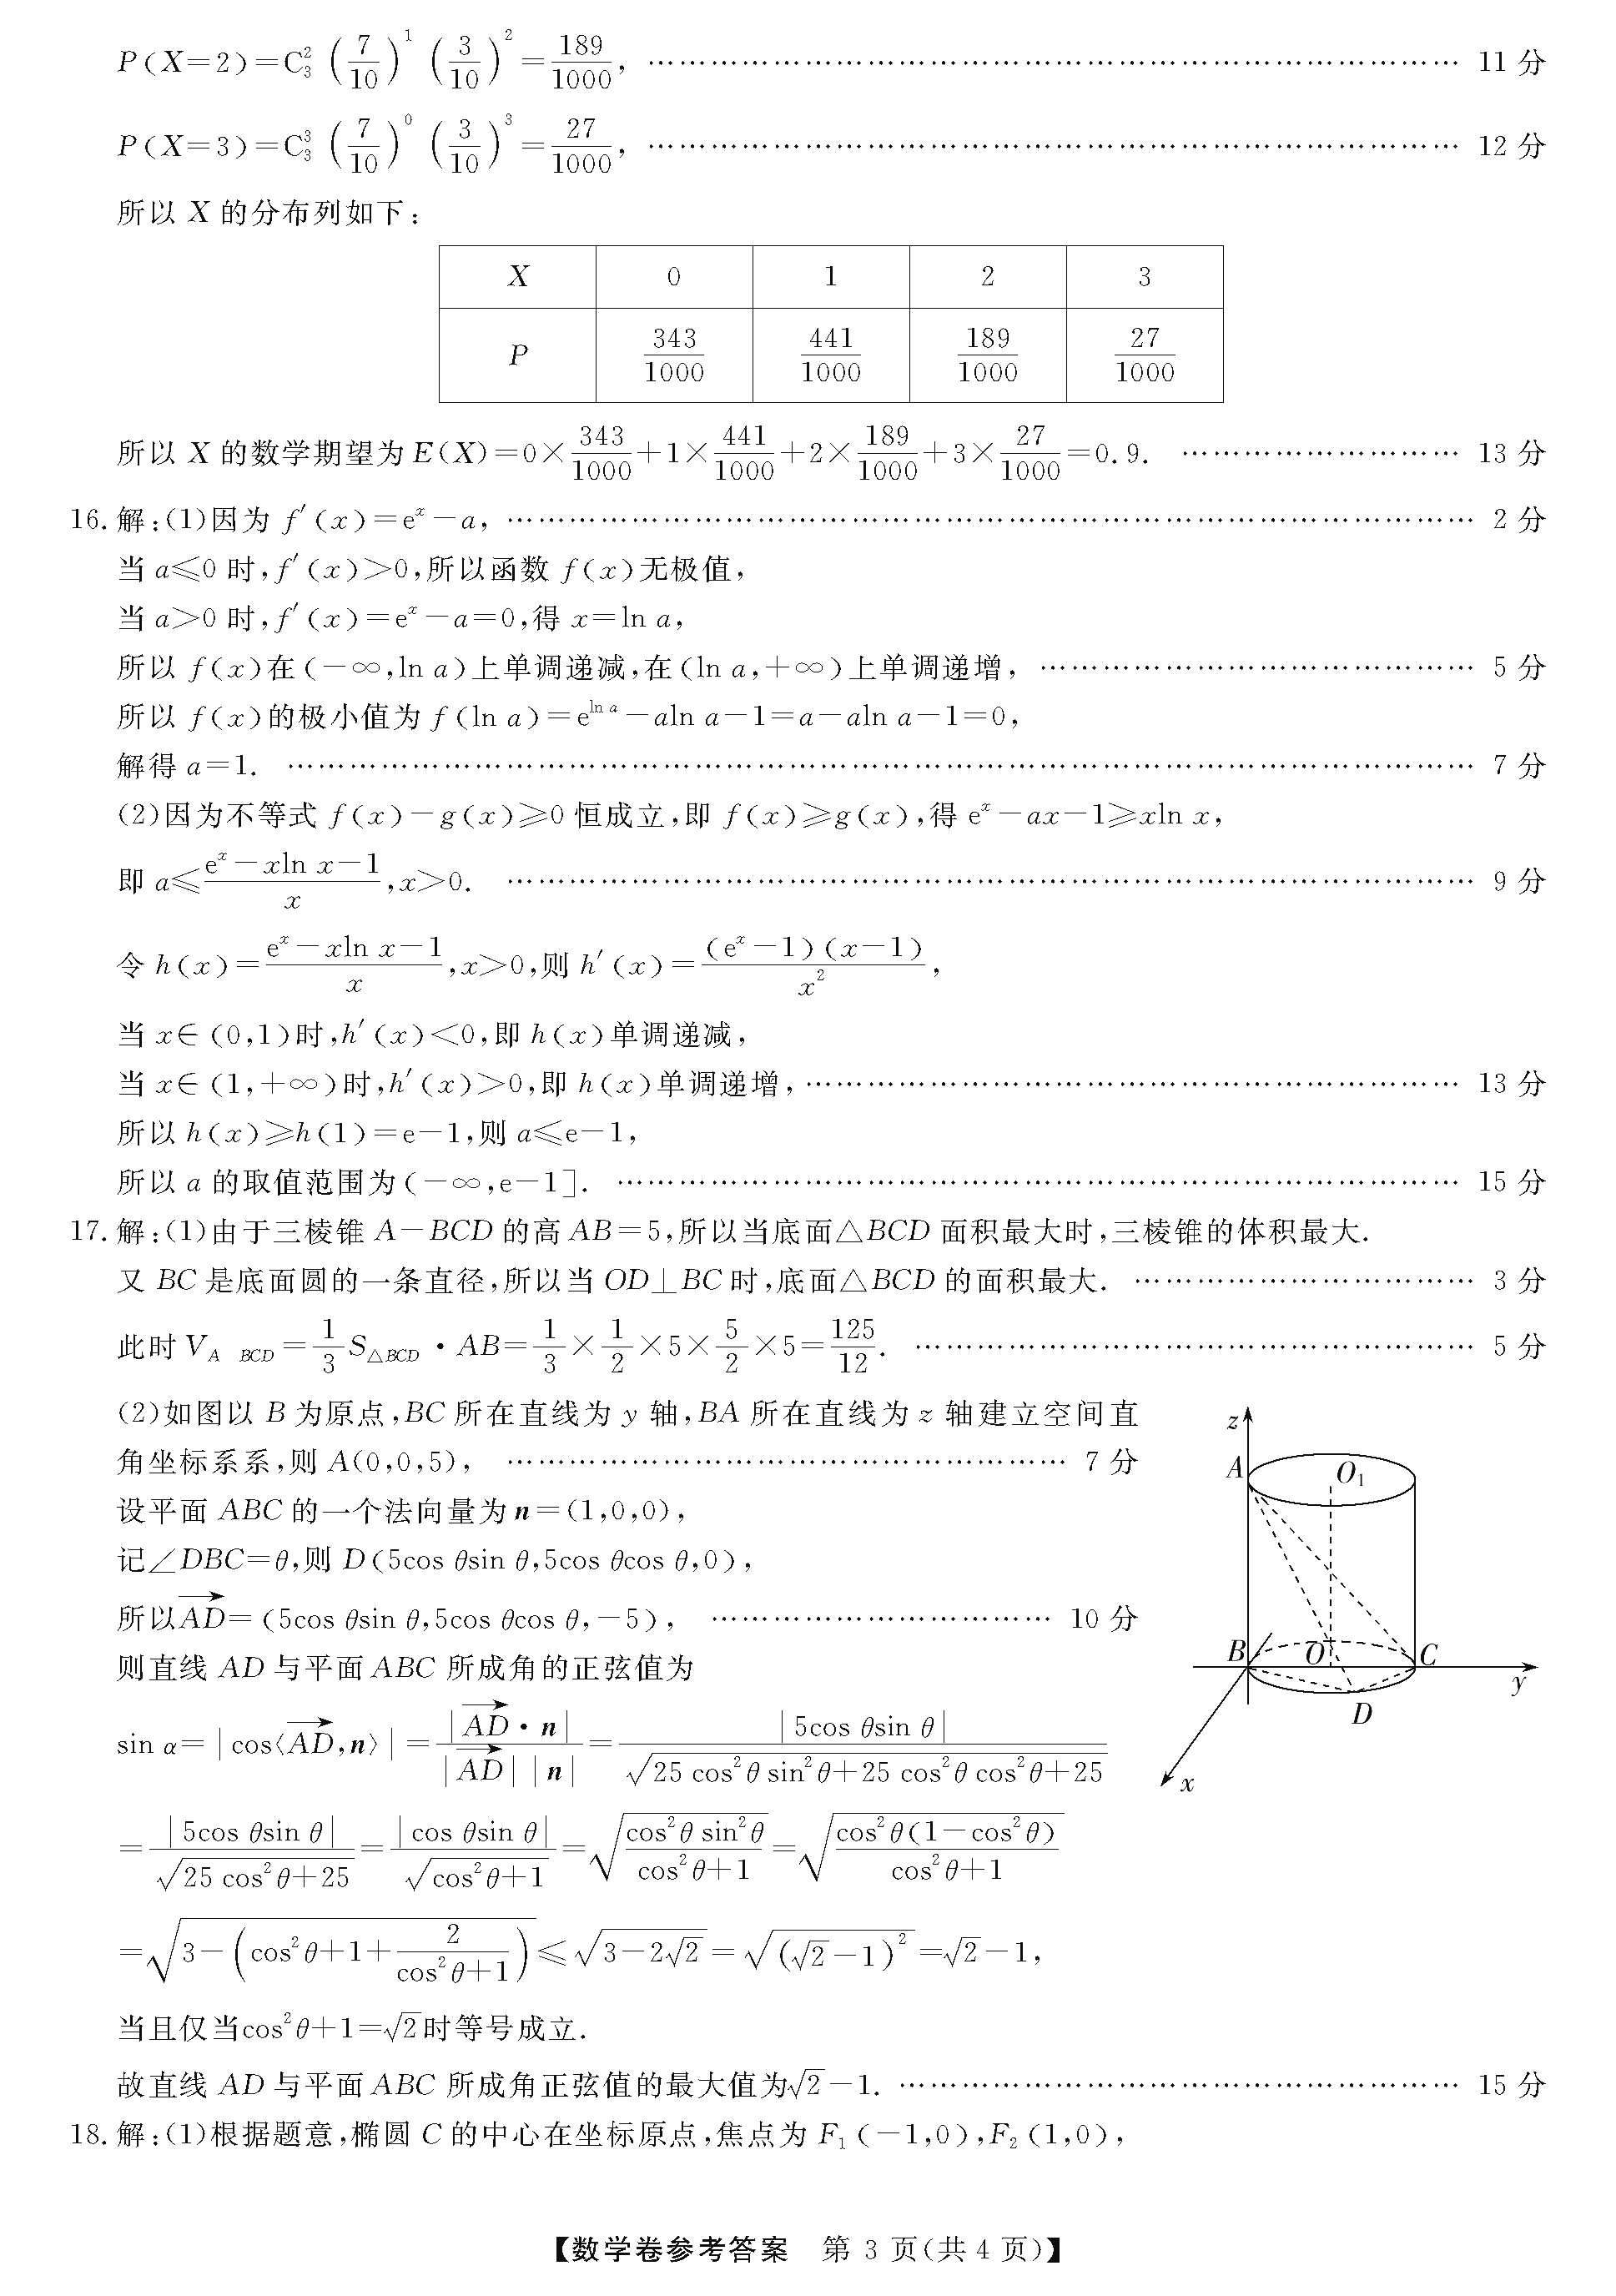 P(X=2)=C₃²(7/10)¹(3/10)²=189/1000, …… 11 分
P(X=3)=C₃³(7/10)⁰(3/10)³=27/1000, …… 12 分
所以 X 的分布列如下:
X 0 1 2 3
P 343/1000 441/1000 189/1000 27/1000
所以 X 的数学期望为 E(X)=0×343/1000+1×441/1000+2×189/1000+3×27/1000=0.9. …… 13 分
16.解:(1)因为 f′(x)=eˣ-a, …… 2 分
当 a≤0 时,f′(x)>0,所以函数 f(x)无极值,
当 a>0 时,f′(x)=eˣ-a=0,得 x=ln a,
所以 f(x)在(-∞,ln a)上单调递减,在(ln a,+∞)上单调递增, …… 5 分
所以 f(x)的极小值为 f(ln a)=e^(ln a)-aln a-1=a-aln a-1=0,
解得 a=1. …… 7 分
(2)因为不等式 f(x)-g(x)≥0 恒成立,即 f(x)≥g(x),得 eˣ-ax-1≥xln x,
即 a≤(eˣ-xln x-1)/x,x>0. …… 9 分
令 h(x)=(eˣ-xln x-1)/x,x>0,则 h′(x)=(eˣ-1)(x-1)/x²,
当 x∈(0,1)时,h′(x)<0,即 h(x)单调递减,
当 x∈(1,+∞)时,h′(x)>0,即 h(x)单调递增, …… 13 分
所以 h(x)≥h(1)=e-1,则 a≤e-1,
所以 a 的取值范围为(-∞,e-1]. …… 15 分
17.解:(1)由于三棱锥 A-BCD 的高 AB=5,所以当底面△BCD 面积最大时,三棱锥的体积最大.
又 BC 是底面圆的一条直径,所以当 OD⊥BC 时,底面△BCD 的面积最大. …… 3 分
此时 V_A BCD=1/3 S_△BCD·AB=1/3×1/2×5×5/2×5=125/12. …… 5 分
(2)如图以 B 为原点,BC 所在直线为 y 轴,BA 所在直线为 z 轴建立空间直
角坐标系系,则 A(0,0,5), …… 7 分
设平面 ABC 的一个法向量为 n=(1,0,0),
记∠DBC=θ,则 D(5cos θsin θ,5cos θcos θ,0),
所以AD→=(5cos θsin θ,5cos θcos θ,-5), …… 10 分
则直线 AD 与平面 ABC 所成角的正弦值为
sin α=|cos⟨AD→,n⟩|=|AD→·n|/(|AD→||n|)=|5cos θsin θ|/√(25 cos²θ sin²θ+25 cos²θ cos²θ+25)
=|5cos θsin θ|/√(25 cos²θ+25)=|cos θsin θ|/√(cos²θ+1)=√(cos²θ sin²θ/(cos²θ+1))=√(cos²θ(1-cos²θ)/(cos²θ+1))
=√(3-(cos²θ+1+2/(cos²θ+1)))≤√(3-2√2)=√((√2-1)²)=√2-1,
当且仅当cos²θ+1=√2时等号成立.
故直线 AD 与平面 ABC 所成角正弦值的最大值为√2-1. …… 15 分
z
A
O₁
B
O
C
y
D
x
18.解:(1)根据题意,椭圆 C 的中心在坐标原点,焦点为 F₁(-1,0),F₂(1,0),
【数学卷参考答案 第 3 页(共 4 页)】